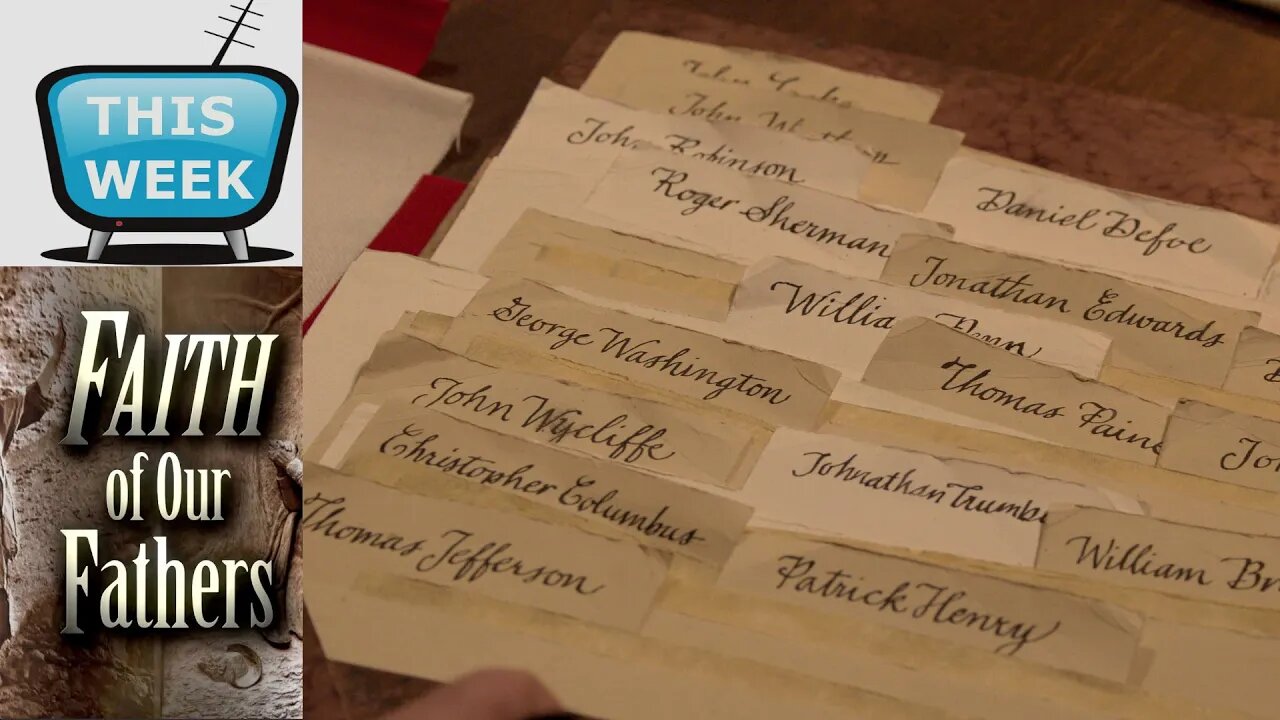 THIS
WEEK
FAITH
of Our
Fathers
John
John Robinson
Daniel Defoe
Roger Sherman
Jonathan Edwards
William Penn
George Washington
Thomas Paine
John Wycliffe
Johnathan Trumbu
Christopher Columbus
William Br
Thomas Jefferson
Patrick Henry